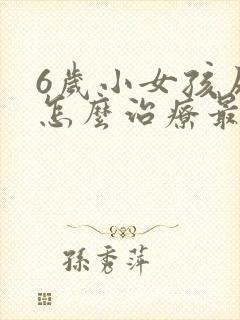 6歲小女孩
怎麼治療最
孫秀萍